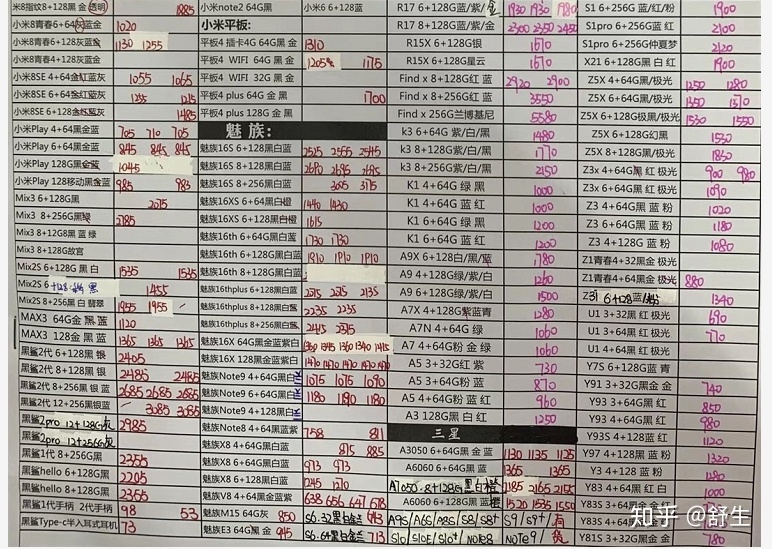 米8指纹8+128黑 透明 1885
小米8青春6+64灰蓝金 1020
小米8青春6+128灰蓝金 1130 1255
小米8青春4+128灰蓝金
小米8SE 4+64金红蓝灰 1055 1065
小米8SE 6+64金红蓝灰 1255 1215
小米8SE 6+128金红蓝灰 1485
小米Play 4+64黑金蓝 705 710 705
小米Play 6+64黑金蓝 845 845 845
小米Play 128G黑金蓝 1045
小米Play 128移动黑金蓝 985 983
Mix3 6+128G黑 2075
Mix3 8+256G黑绿 2185
Mix3 8+12G8黑 蓝 绿
Mix3 8+128G故宫
Mix2S 6+128G 黑 白 1535 1535
Mix2S 6+128 黑 1455
Mix2S 8+256黑 白 翡翠 1955 1955
MAX3 64G金 黑 蓝 1120
MAX3 128黑 金 蓝 1365 1365 1365
黑鲨2代 6+128黑 银 2405
黑鲨2代 8+128黑 银 2485 2485
黑鲨2代 8+256黑 银 蓝 2685 2685 2685
黑鲨2代 12+256黑银蓝 3085 3085
黑鲨2pro 12+128G灰 2985
黑鲨2pro 12+256G灰
黑鲨1代 8+256G黑 2355
黑鲨hello 6+128G黑 2205
黑鲨hello 8+128G黑 2355
黑鲨1代手柄 2代手柄 98 53
黑鲨Type-c半入耳式耳机 73
小米note2 64G黑 小米6 6+128蓝
小米平板:
平板4 插卡4G 64G黑 金 1310
平板4 WIFI 64G黑 金 1205 1175
平板4 WIFI 32G黑 金
平板4 plus 64G 金 黑 1700
平板4 plus 128G 金 黑
魅 族:
魅族16S 6+128黑白蓝 2525 2555 2545
魅族16S 8+128黑白蓝 2690 2695 2695
魅族16S 8+256黑白蓝 3065 3175
魅族16XS 6+64黑白橙 1440 1430
魅族16XS 6+128黑白橙 1615
魅族16th 6+64G黑白蓝 1730 1730
魅族16th 6+128黑白蓝 1810 1910 1910
魅族16th 8+128G黑白蓝
魅族16thplus 6+128黑白蓝 2215 2215 2135
魅族16thplus 8+128黑白蓝 2235 2235
魅族16thplus 8+256黑白蓝 2415 2375
魅族16X 64G黑金蓝紫白 1350 1345 1360 1340 1415
魅族16X 128黑金蓝紫白 1470 1470 1470 1470 1470
魅族Note9 4+64G黑白 1075 1075 1090
魅族Note9 6+64G黑白 1180 1190 1180
魅族Note9 4+128黑白
魅族Note8 4+64黑蓝紫 758 811
魅族X8 4+64G黑白蓝 815 885
魅族X8 6+64G黑白蓝 973 973
魅族X8 6+128黑白蓝 1245 1210
魅族V8 4+64黑金蓝紫 638 656 647 678
魅族M15 64G灰 850 S6.32黑白金蓝 643
魅族E3 64G黑 金 945 S6.64黑白金蓝 713
R17 6+128G蓝/紫/金 1930 1930 1980
R17 8+128G蓝/紫/ 2300 2350 2450
R15X 6+128G银 1670
R15X 6+128G星云 1670
Find x 8+128G红 蓝 2920 2900
Find x 8+256G红 蓝 3550
Find x 256G兰博基尼 5580
k3 6+64G 紫/白/黑 1480
k3 8+128G紫/白/黑 1770
k3 8+256G紫/白/黑 2150
K1 4+64G 绿 黑 1000
K1 4+64G 蓝 红 1000
K1 6+64G 绿 黑 1200
K1 6+64G 蓝 红 1200
A9X 6+128白/黑/ 1780
A9 4+128G绿/紫/白 1260
A9 6+128G绿/紫/白 1500
A7X 4+128G紫蓝青 1280
A7N 4+64G 绿 1060
A7 4+64G粉 金 绿 1060
A5 3+32G红 紫 730
A5 3+64G粉 蓝 870
A5 4+64G粉 蓝 960
A3 128G黑 白 红 1250
三 星
A3050 6+64G黑 金 蓝 1130 1135 1125
A6060 6+64G黑 蓝 1365 1365
A7050 8+128G黑白橙 2185 2165 2155
A6060 6+128G黑 蓝 1520 1535 1550
A9S/A6S/A8S/S8/S8+ S9/S9+/有
S10/S10E/S10+/Note8 NOTE9/货
S1 6+256G 蓝/红/粉 1900
S1pro 6+256G 蓝红 2100
S1pro 6+256G仲夏梦 2120
X21 6+128G黑 白 红 1900
Z5X 4+64G黑/极光 1250 1280
Z5X 6+64G黑/极光 1350 1370
Z5X 6+128G极黑/极光 1530 1550
Z5X 6+128G幻黑 1530
Z5X 8+128G黑/极光 1830
Z3x 4+64G黑 红 极光 900 980
Z3x 6+64G黑 红 极光 1090
Z3 4+64G黑 蓝 粉 1020
Z3 6+64G黑 蓝 粉 1180
Z3 4+128G 蓝 粉 1080
Z1青春4+32黑 金 极光
Z1青春4+64黑金 极光 880
Z3i 6+128蓝/粉 1340
U1 3+32黑 红 极光 690
U1 3+64黑 红 极光 770
U1 4+64黑 红 极光
Y7S 6+128G蓝 青
Y91 3+32G黑金 金 740
Y93 3+64G黑 红 850
Y93 4+64G黑 红 980
Y93S 4+128蓝 红 1120
Y97 4+128黑 蓝 粉 1320
Y3 4+128黑 蓝 粉 1280
Y83 4+64黑 红 白 1000
Y83S 3+64G黑 金
Y81S 4+64G黑 金
Y81S 3+32G黑 金 780
知乎 @舒生